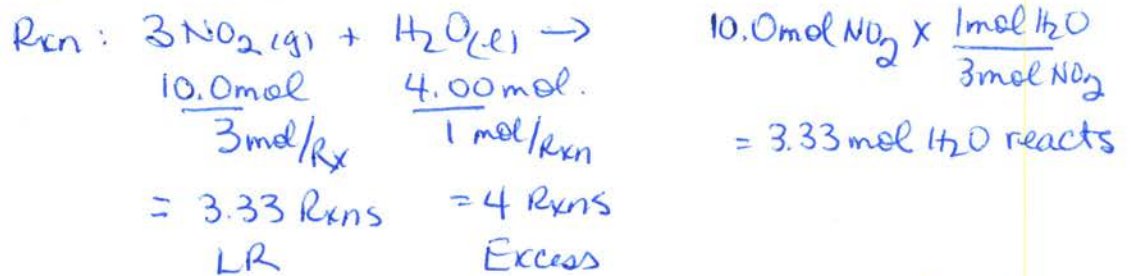 Rxn: 3NO₂(g) + H₂O(l) →
10.0mol 4.00mol.
3mol/Rx 1 mol/Rxn
= 3.33 Rxns =4 Rxns
LR Excess
10.0mol NO₂ x 1mol H₂O
3mol NO₂
= 3.33mol H₂O reacts